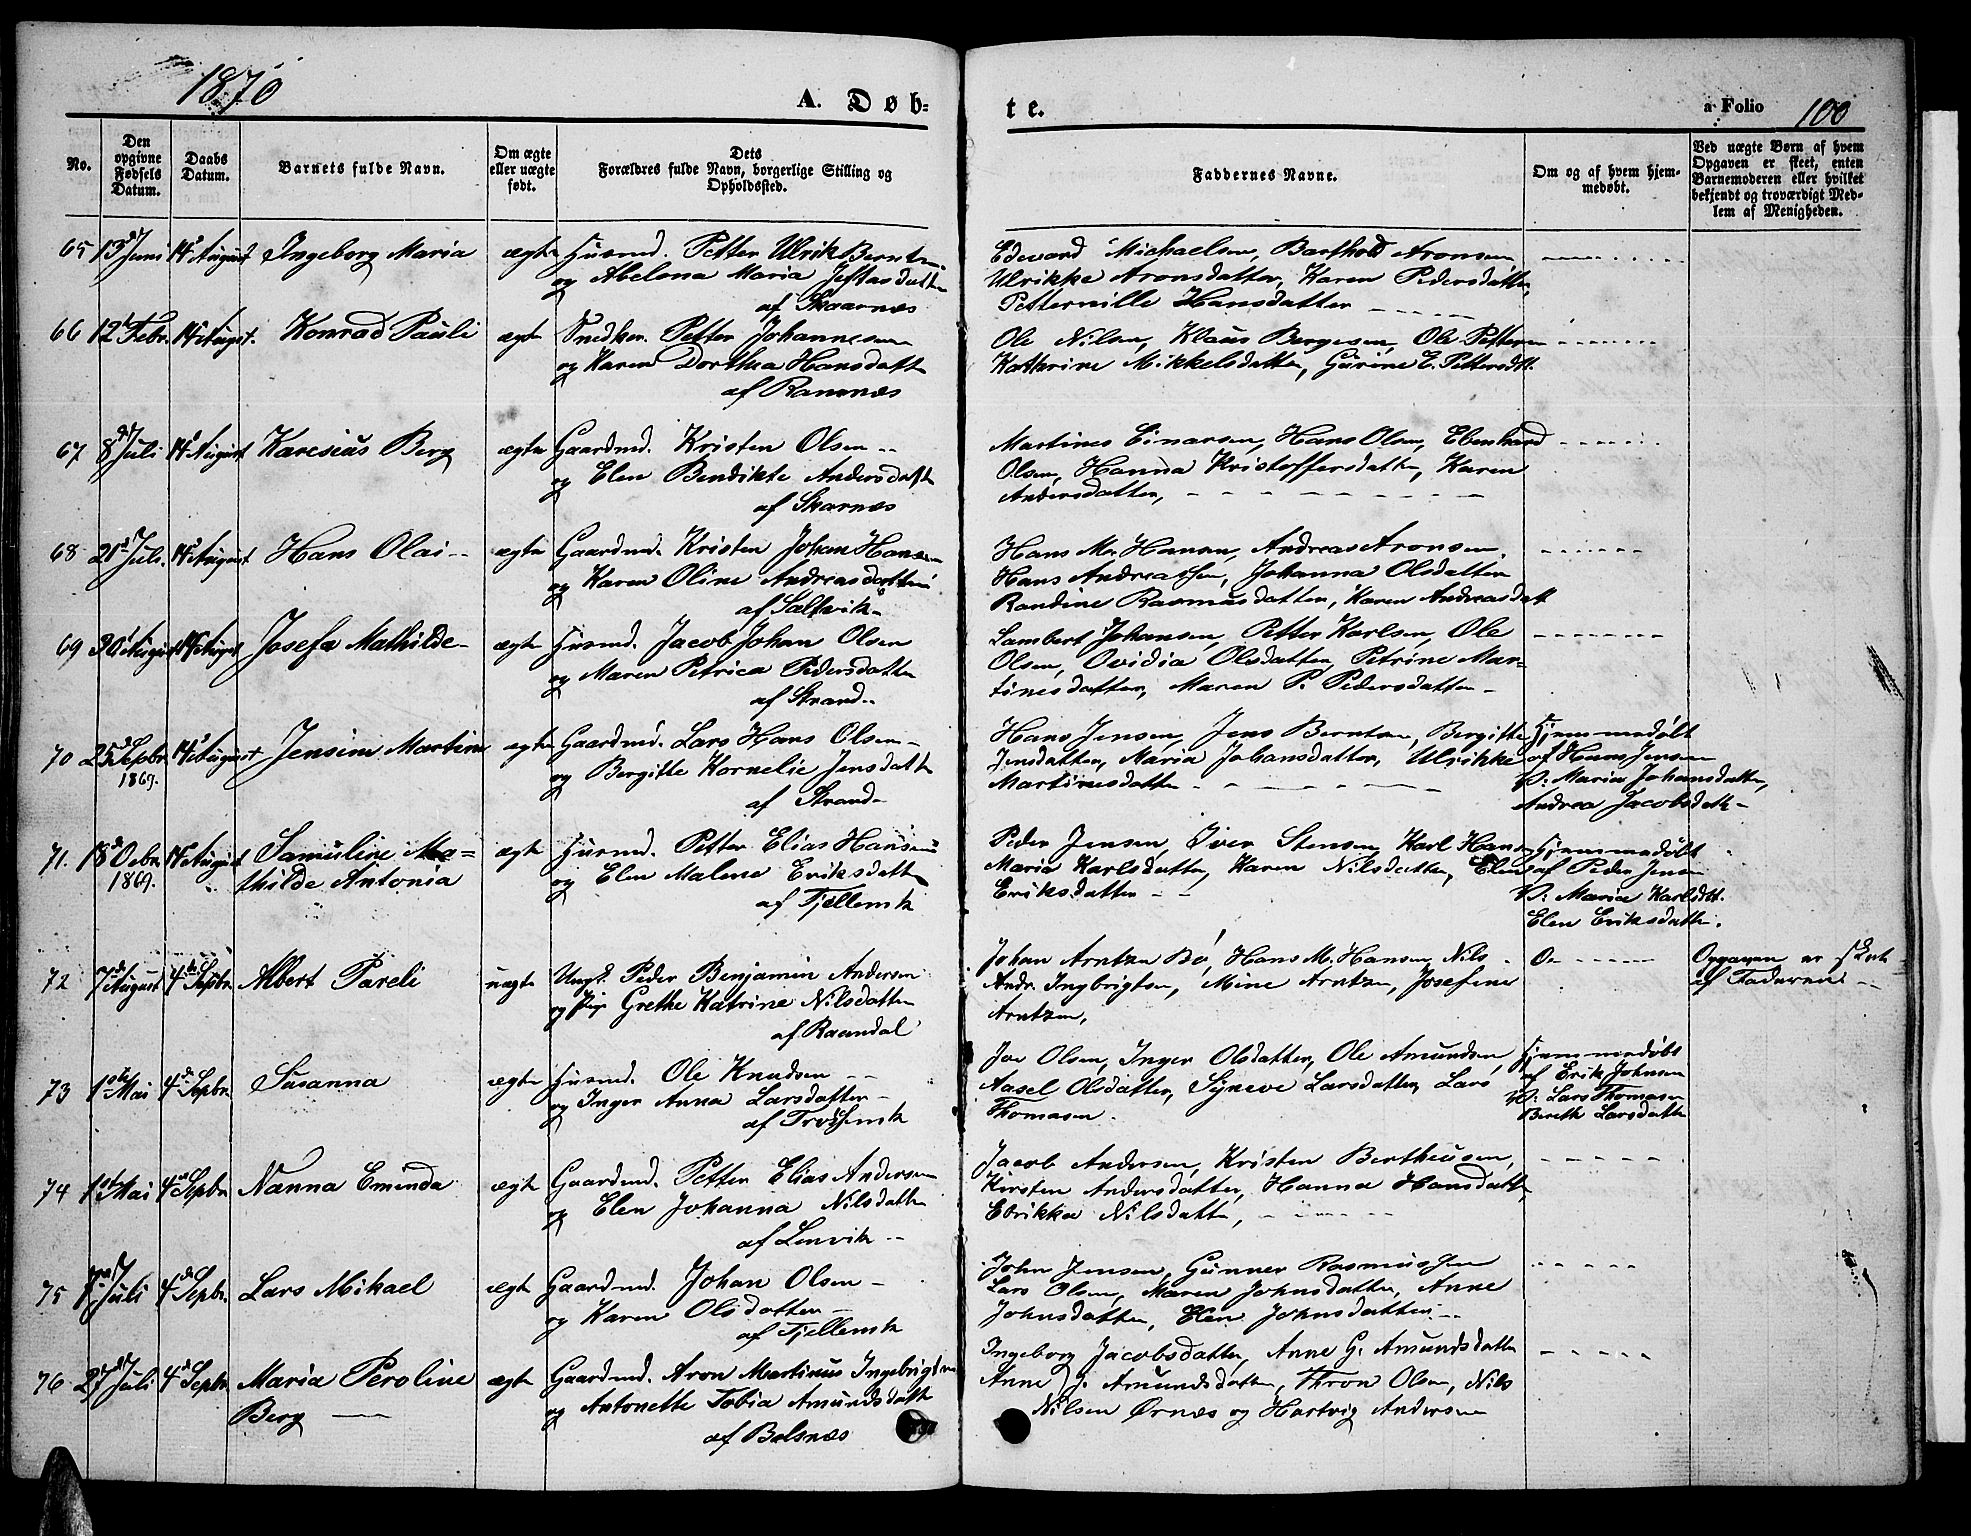 1870
A. Døb-
te.
a Folio 100
No.
Den opgivne Fødsels Datum.
Daabs Datum.
Barnets fulde Navn.
Om ægte eller uægte født.
Dets Forældres fulde Navn, borgerlige Stilling og Opholdssted.
Faddernes Navne.
Om og af hvem hjem-
medøbt.
Ved uægte Børn af hvem
Opgaven er skeet, enten
Barnemoderen eller hvilket
bekjendt og troværdigt Med-
lem af Menigheden.
65 13 Juni 14 August Ingeborg Maria ægte Husmd. Petter Ulrik Berntsen
og Abelona Maria Jeftasdatter
af Skaarnæs
Edevard Michaelsen, Barthold Aronsen,
Ulrikke Aronsdatter, Karen Pedersdatter,
Petternille Hansdatter
66 12 Febr. 14 August. Konrad Pauli ægte Snedker. Petter Johannesen
og Karen Dorthea Hansdatter
af Ramnæs
Ole Nilsen, Klaus Bergesen, Ole Pettersen
Kathrine Mikkelsdatter, Gurine E. Pettersdt.
67 8 Juli 14 August Karesius Berg ægte Gaardmd. Kristen Olsen
og Elen Bendikte Andersdatter
af Skarnæs
Martines Einarsen, Hans Olsen, Ebenhard
Olsen, Hanna Kristoffersdatter, Karen
Andersdatter,
68 21 Juli. 14 August Hans Olai ægte Gaardmd. Kristen Johan Hansen
og Karen Oline Andreasdatter
af Saltvik
Hans Mr. Hansen, Andreas Aronsen,
Hans Andreassen, Johanna Olsdatter
Randine Rasmusdatter, Karen Andreasdatt
69 30 August 14 August Josefa Mathilde ægte Husmd. Jacob Johan Olsen
og Maren Petrica Pedersdatter
af Strand
Lambert Johansen, Petter Karlsen, Ole
Olsen, Ovidia Olsdatter, Petrine Mar-
tinesdatter, Maren P. Pedersdatter
70 25 Sepbr. 1869. 14 August Jensine Martine ægte Gaardmd. Lars Hans Olsen
og Bergitte Kornelie Jensdatt
af Strand
Hans Jensen, Jens Berntsen, Bergitte
Jensdatter, Maria Johansdatter, Ulrikke
Martinusdatter
Hjemmedøbt
af Hans Jensen
V: Maria Johansdatter,
Andrea Jacobsdatt
71. 18 Ocbr. 1869. 14 August Samuline Ma=
thilde Antonia ægte Husmd. Petter Elias Hansen
og Elen Malene Eriksdatter
af Fjellemk
Peder Jensen, Iver Stensen, Karl Hansen
Maria Karlsdatter, Karen Nilsdatter, Elen
Eriksdatter
Hjemmedøbt
af Peder Jensen
V: Maria Karlsdt.
Elen Eriksdatter.
72 7 August 4 Sepbr. Albert Pareli uægte Ungk. Peder Benjamin Andersen
og Pige Grethe Katrine Nilsdatter
af Ramdal
Johan Arntzen Bö, Hans M. Hansen, Nils
Andr. Ingbrigtsen, Mine Arntzen, Josefine
Arntzen,
Opgaven er skeet
af Fadderne
73 1ste Mai 4de Sepbr. Susanna ægte Husmd. Ole Knudsen
og Inger Anna Larsdatter
af Trofsemk
Joe Olsen, Inger Olsdatter, Ole Amundsen,
Aasel Olsdatter, Syneve Larsdatter, Lars
Thomasen.
Hjemmedøbt
af Erik Johnsen
V: Lars Thomasen
Bereth Larsdatter
74 1ste Mai 4 Sepbr. Nanna Eminda ægte Gaardmd. Petter Elias Andersen
og Elen Johanna Nilsdatter
af Lenvik
Jacob Andersen, Kristen Bertheusen,
Kirsten Andersdatter, Hanna Hansdatt,
Edrikka Nilsdatter,
75 7 Juli 4 Sepbr. Lars Mikael ægte Gaardmd. Johan Olsen
og Karen Olsdatter
af Fjellemk
John Jensen, Gunner Rasmussen
Lars Olsen, Maren Johnsdatter, Anne
Johnsdatter, Elen Johnsdatter
76 27 Juli 4 Sepbr. Maria Peroline
Berg ægte Gaardmd. Aron Martinus Ingebrigtsen
og Antonette Tobia Amundsdatt
af Balsnæs
Ingeborg Jacobsdatter, Anne G. Amundsdatter
Anne J. Amundsdatter, Thron Olsen, Nils
Nilsen Ørnæs og Hartvig Andersen